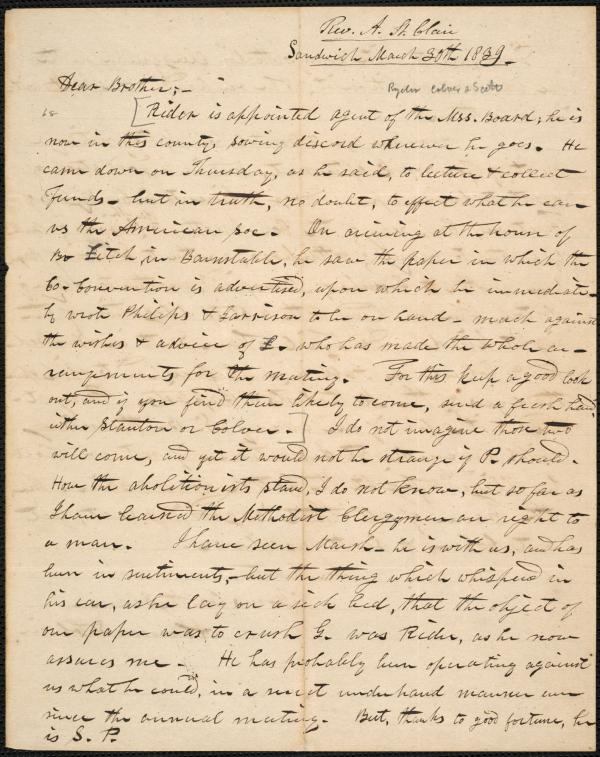 Rev. A. St. Clair
Sandwich March 30th 1839.
Dear Brother;-
Ryder Colver & Scott
[Rider is appointed agent of the Mss. Board; he is
now in this county, sowing discord wherever he goes. He
came down on Thursday, as he said, to lecture & collect
Funds - but in truth, no doubt, to effect what he can
vs the American Soc. On arriving at the house of
Br Fitch in Barnstable, he saw the paper in which the
Co. Convention is advertised, upon which he immediate-
ly wrote Philips & Garrison to be on hand - much against
the wishes & advice of F. who has made the whole ar-
rangements for the meeting. For this keep a good look
out, and if you find them likely to come, send a fresh hand
either Stanton or Colver.] I do not imagine those two
will come, and yet it would not be strange if P. should.
How the abolitionists stand, I do not know, but so far as
I have learned the Methodist Clergymen are right to
a man. I have seen Marsh - he is with us, and has
been in sentiments, - but the thing which whispered in
his ear, as he lay on a sick bed, that the object of
our paper was to crush G. was Rider, as he now
assures me. He has probably been operating against
us what he could, in a most underhand manner ever
since the annual meeting. But, thanks to good fortune, he
is S. P.